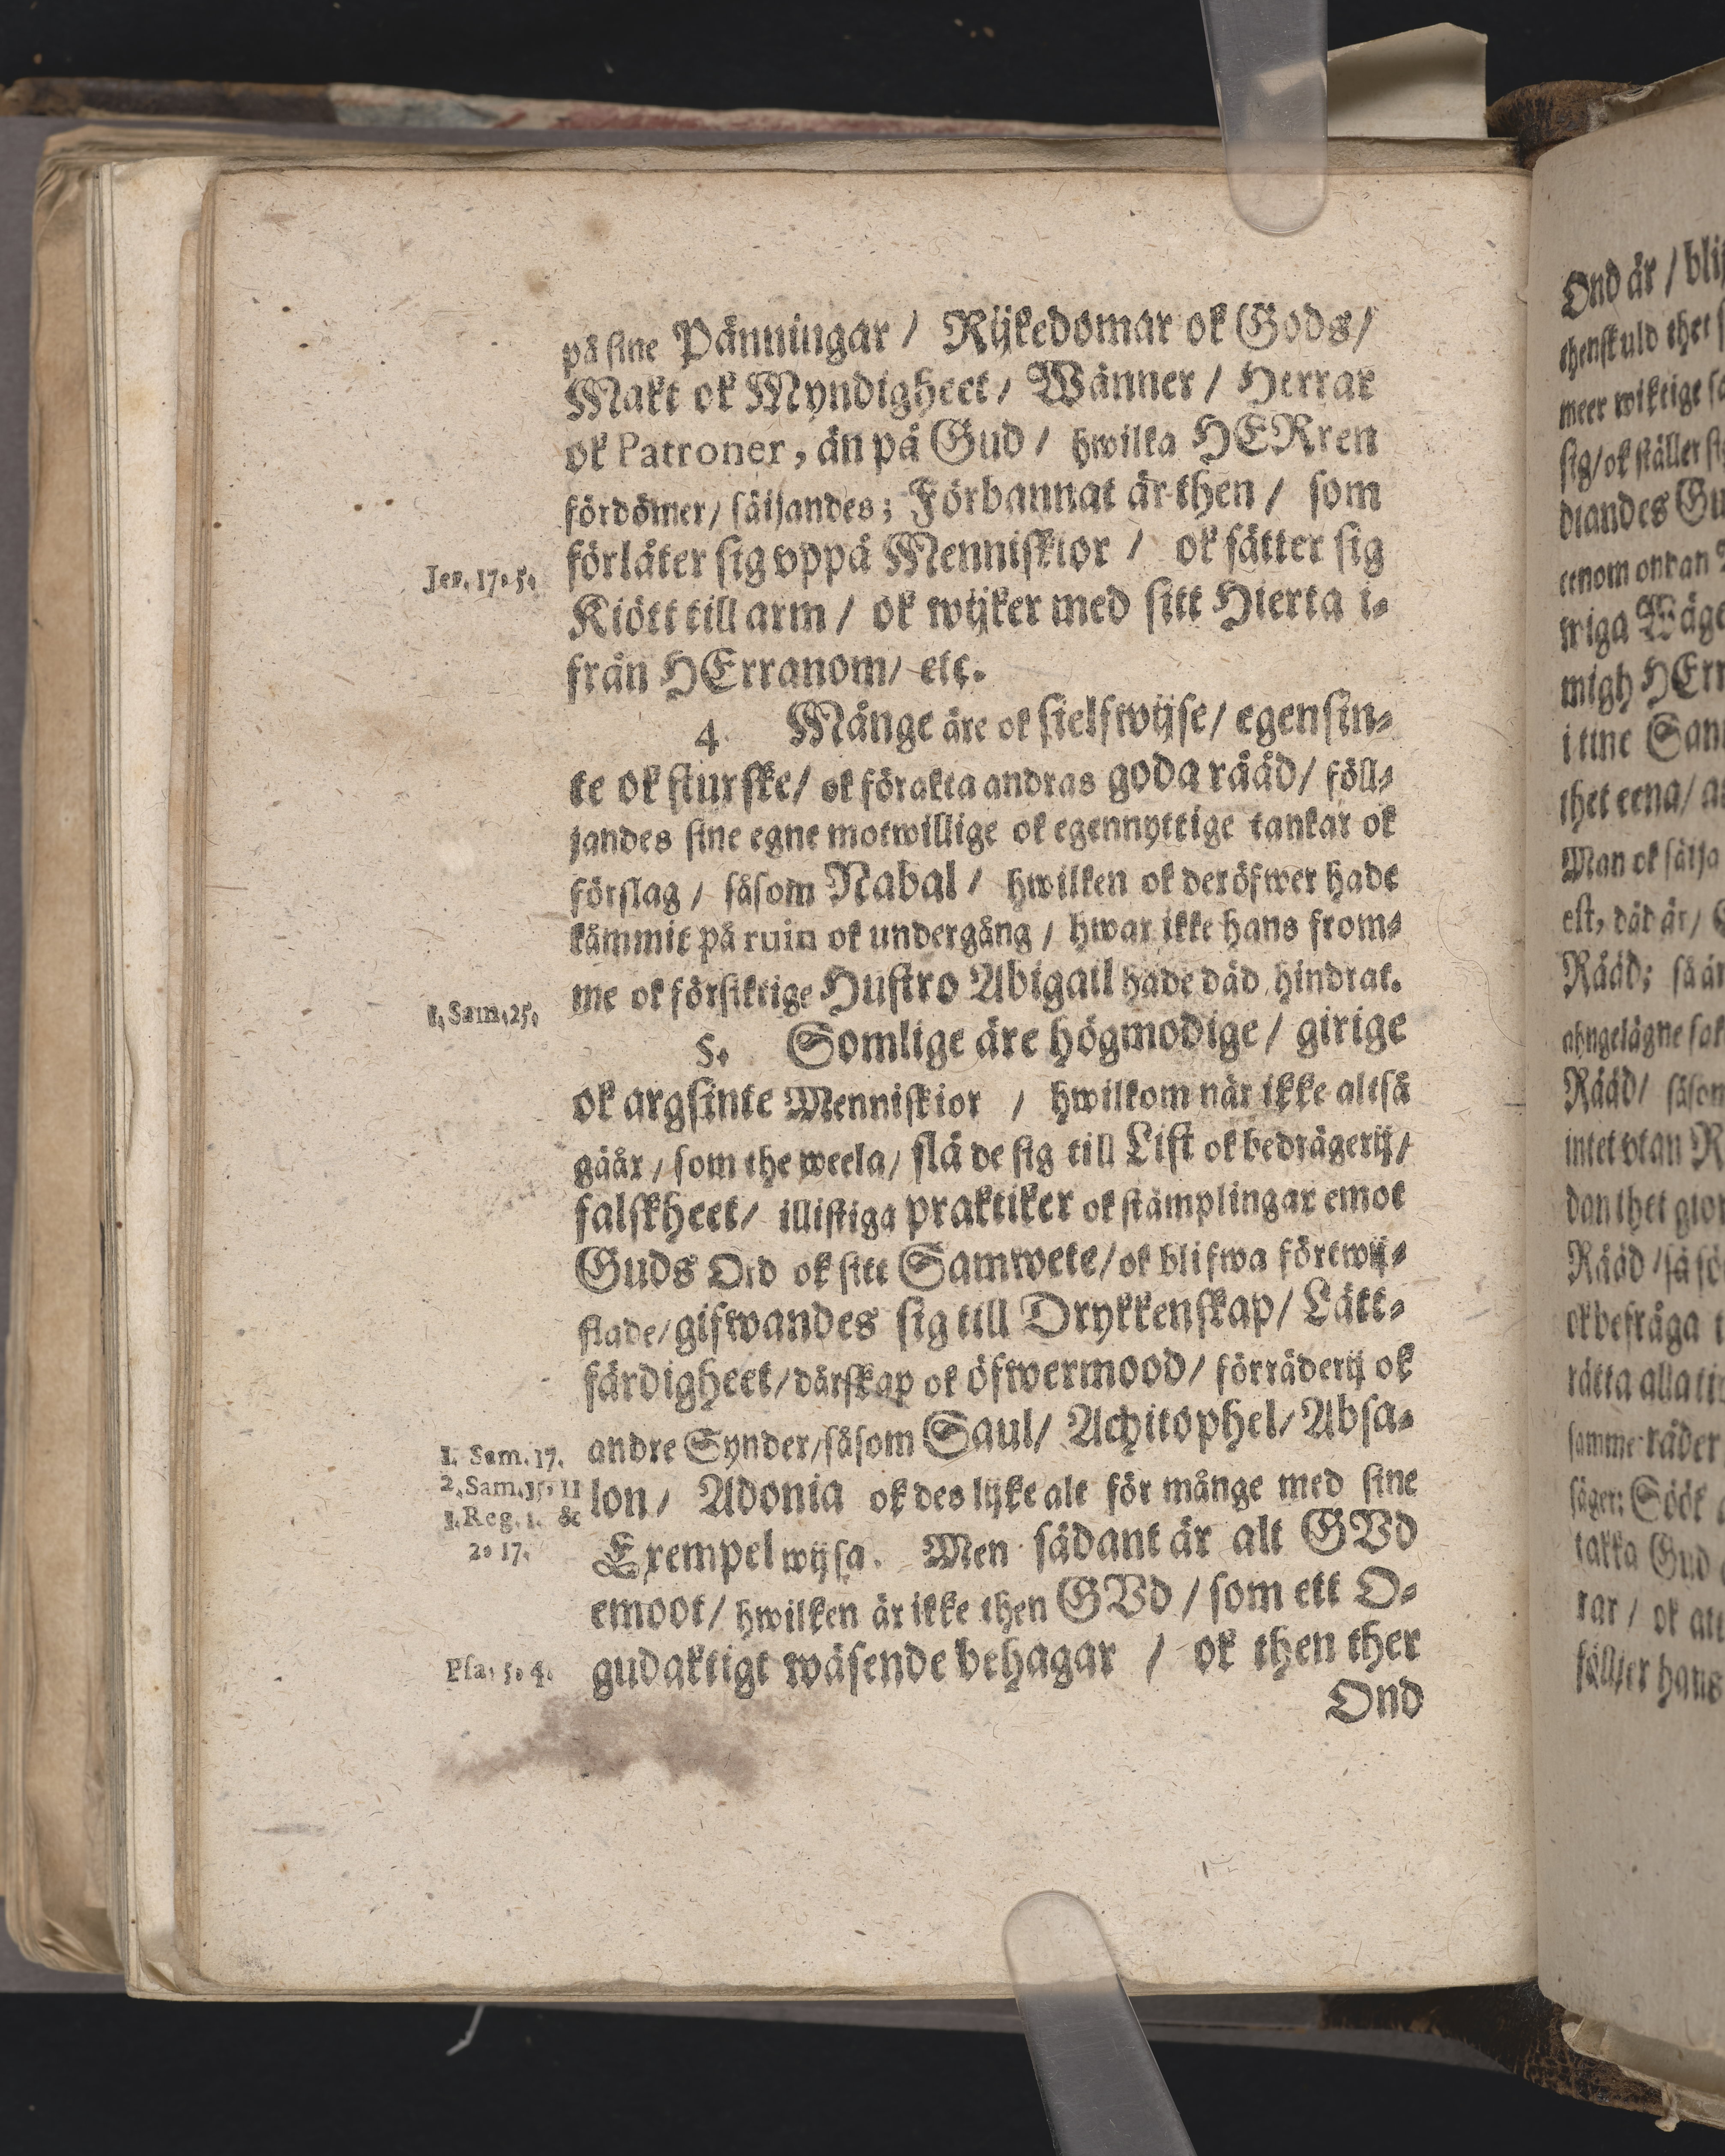 på sine Pänningar / Rijkedomar ok Gods /
Makt ok Myndigheet / Wänner / Herrar
ok Patroner, än på Gud / hwilka HERren
fördömer / säijandes; Förbannat är then / som
förlåter sig vppå Menniskior / ok sätter sig
Jer. 17. 5.
Kiött till arm / ok wijker med sitt Hierta i-
från HErranom / etc.
4. Månge äre ok sielfwijse / egensin-
te ok sturske / ok förakta andras goda rååd / föll-
jandes sine egne motwillige ok egennyttige tankar ok
förslag / såsom Nabal / hwilken ok deröfwer hade
kåmmit på ruin ok undergång / hwar ikke hans from-
me ok försiktige Hustro Abigail hade däd hindrat.
1. Sam. 25.
5. Somlige äre högmodige / girige
ok argsinte Menniskior / hwilkom när ikke altså
gåår / som the weela / slå de sig till List ok bedrägerij /
falskheet / illistiga praktiker ok stämplingar emot
Guds Ord ok sitt Samwete / ok blifwa förtwij-
flade / gifwandes sig till Drykkenskap / Lätt-
färdigheet / dårskap ok öfwermood / förräderij ok
andre Synder / såsom Saul / Achitophel / Absa-
1. Sam. 17.
lon / Adonia ok des lijke alt för månge med sine
2. Sam. 15. 11
1. Reg. 1. &
Exempel wijsa. Men sådant är alt GVd
2. 17.
emoot / hwilken är ikke then GVd / som ett O-
gudaktigt wäsende behagar / ok then ther
Psa. 5. 4.
Ond
Ond är / blif
thenskuld thet
meer wiktige
sig / ok ställer
diandes
eenom
wiga Wäge
migh HErr
i tine
thet eena /
Man ok säija
est, däd är /
Rååd; så är
Rååd / såsom
intet vtan
dan thet
Rååd / så
ok befråga
rätta alla
samme råder
säger: Söök
takka Gud
rar / ok att
fölljer hans